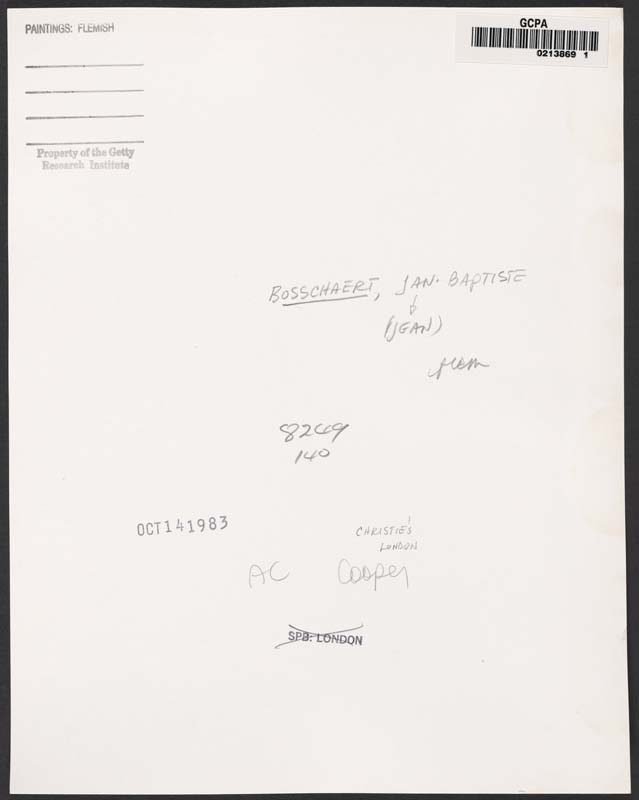 PAINTINGS: FLEMISH
GCPA
0213869 1
Property of the Getty
Research Institute
BOSSCHAERT, JAN. BAPTISTE
(JEAN)
flem
8249
140
OCT 14 1983
CHRISTIE'S
LONDON
AC Cooper
SPB: LONDON